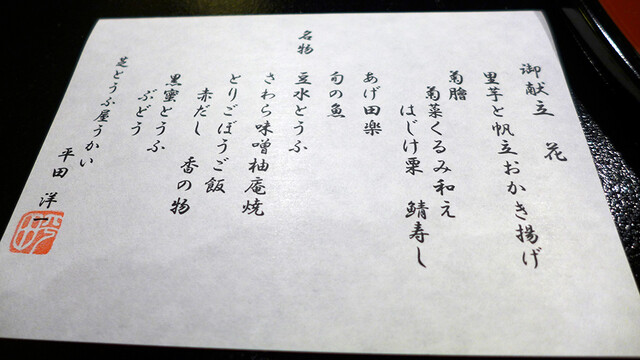 御献立　花
里芋と帆立おかき揚げ
菊膾
菊菜くるみ和え
はじけ栗　鯖寿し
あげ田楽
旬の魚
名物
豆水とうふ
さわら味噌柚庵焼
とりごぼうご飯
赤だし　香の物
黒蜜とうふ
ぶどう
芝とうふ屋うかい
平田　洋一